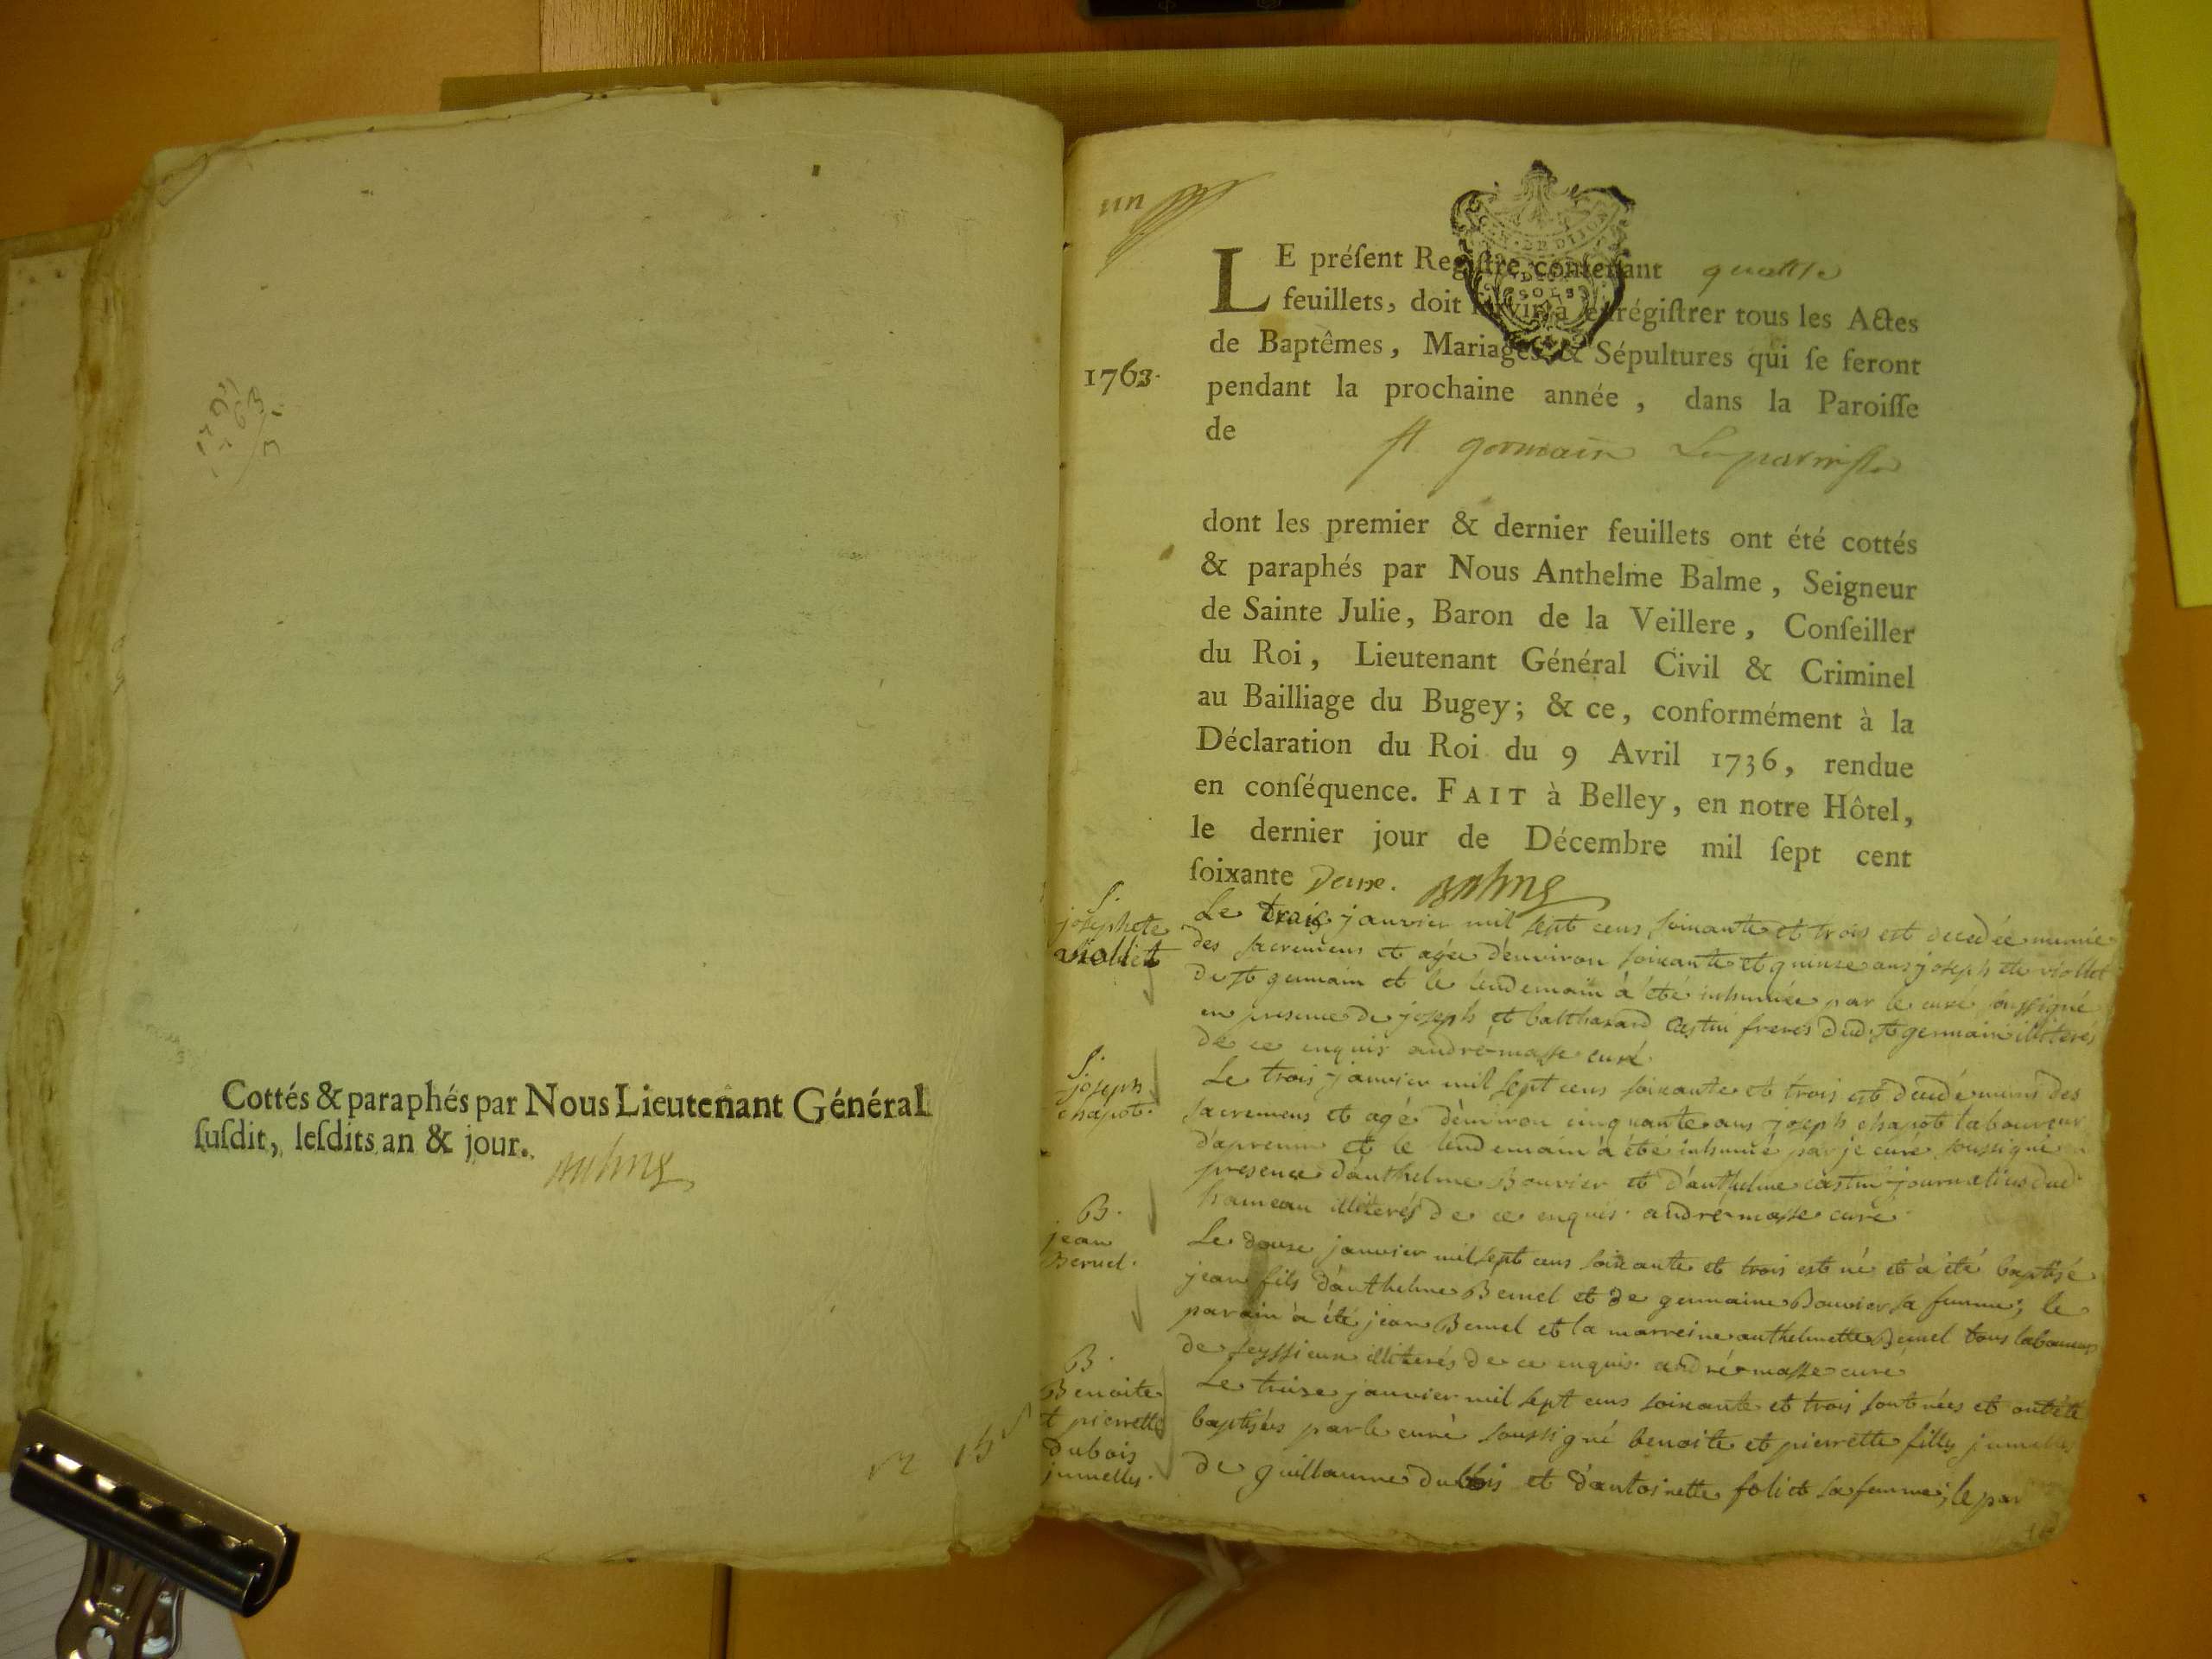 Cottés & paraphés par Nous Lieutenant Général
ſuſdit, leſdits an & jour.
un
1763.
LE préſent Regiſtre contenant quattre
feuillets, doit ſervir à enrégiſtrer tous les Actes
de Baptêmes, Mariages & Sépultures qui ſe feront
pendant la prochaine année, dans la Paroiſſe
de
st germain Les paroisse
dont les premier & dernier feuillets ont été cottés
& paraphés par Nous Anthelme Balme, Seigneur
de Sainte Julie, Baron de la Veillere, Conſeiller
du Roi, Lieutenant Général Civil & Criminel
au Bailliage du Bugey; & ce, conformément à la
Déclaration du Roi du 9 Avril 1736, rendue
en conſéquence. FAIT à Belley, en notre Hôtel,
le dernier jour de Décembre mil ſept cent
ſoixante Deux.
S.
josephete
violliet
Le trois janvier mil sept cens soixante et trois est decedée munie
des sacremens et agée d'environ soixante et quinze ans josephete viollet
de st germain et le lendemain à été inhumée par le curé soussigné
en presence de joseph et balthazard castin freres dud. st germain illiterés
de ce enquis andré masse curé
S.
joseph
chapot.
Le trois janvier mil sept cens soixante et trois est decedé muni des
sacremens et agé d'environ cinquante ans joseph chapot laboureur
et le lendemain à été inhumé par je curé soussigné
presence d'anthelme Bouvier et d'anthelme castin journaliers dud.
hameau illiterés de ce enquis. andré masse curé
B.
jean
Bernel.
Le douze janvier mil sept cens soixante et trois est né et à été baptisé
jean fils d'anthelme Bernel et de germaine Bouvier sa femme; le
parain à été jean Bernel et la marreine anthelmette Bernel tous laboureurs
de seyssieux illiterés de ce enquis. andré masse curé
B.
Benoite
et pierrette
dubois
jumelles.
Le treize janvier mil sept cens soixante et trois sont nées et ont été
baptisées par le curé soussigné benoite et pierrette filles jumelles
de guillaume dubois et d'antoinette foliet sa femme; le par